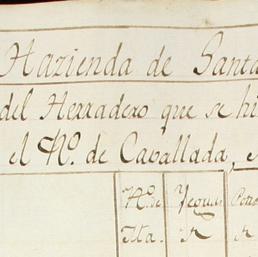 Hazienda de Santa
del Herradero que se hi
el No. de Cavallada, e
No. de Yeguas Potr
Tta. R R